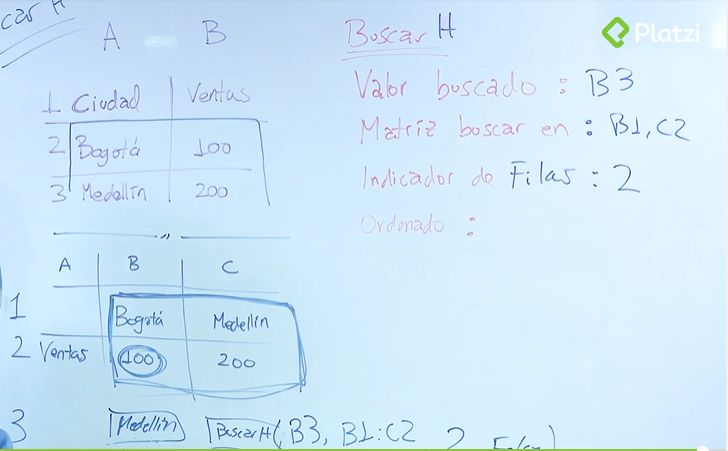 car H
A B
1 Ciudad Ventas
2 Bogotá 100
3 Medellín 200
A B C
1 Bogotá Medellín
2 Ventas 100 200
3 Medellín BuscarH( B3, B1:C2 2
Buscar H
Valor buscado : B3
Matriz buscar en : B1,C2
Indicador de Filas : 2
Ordenado :
Platzi